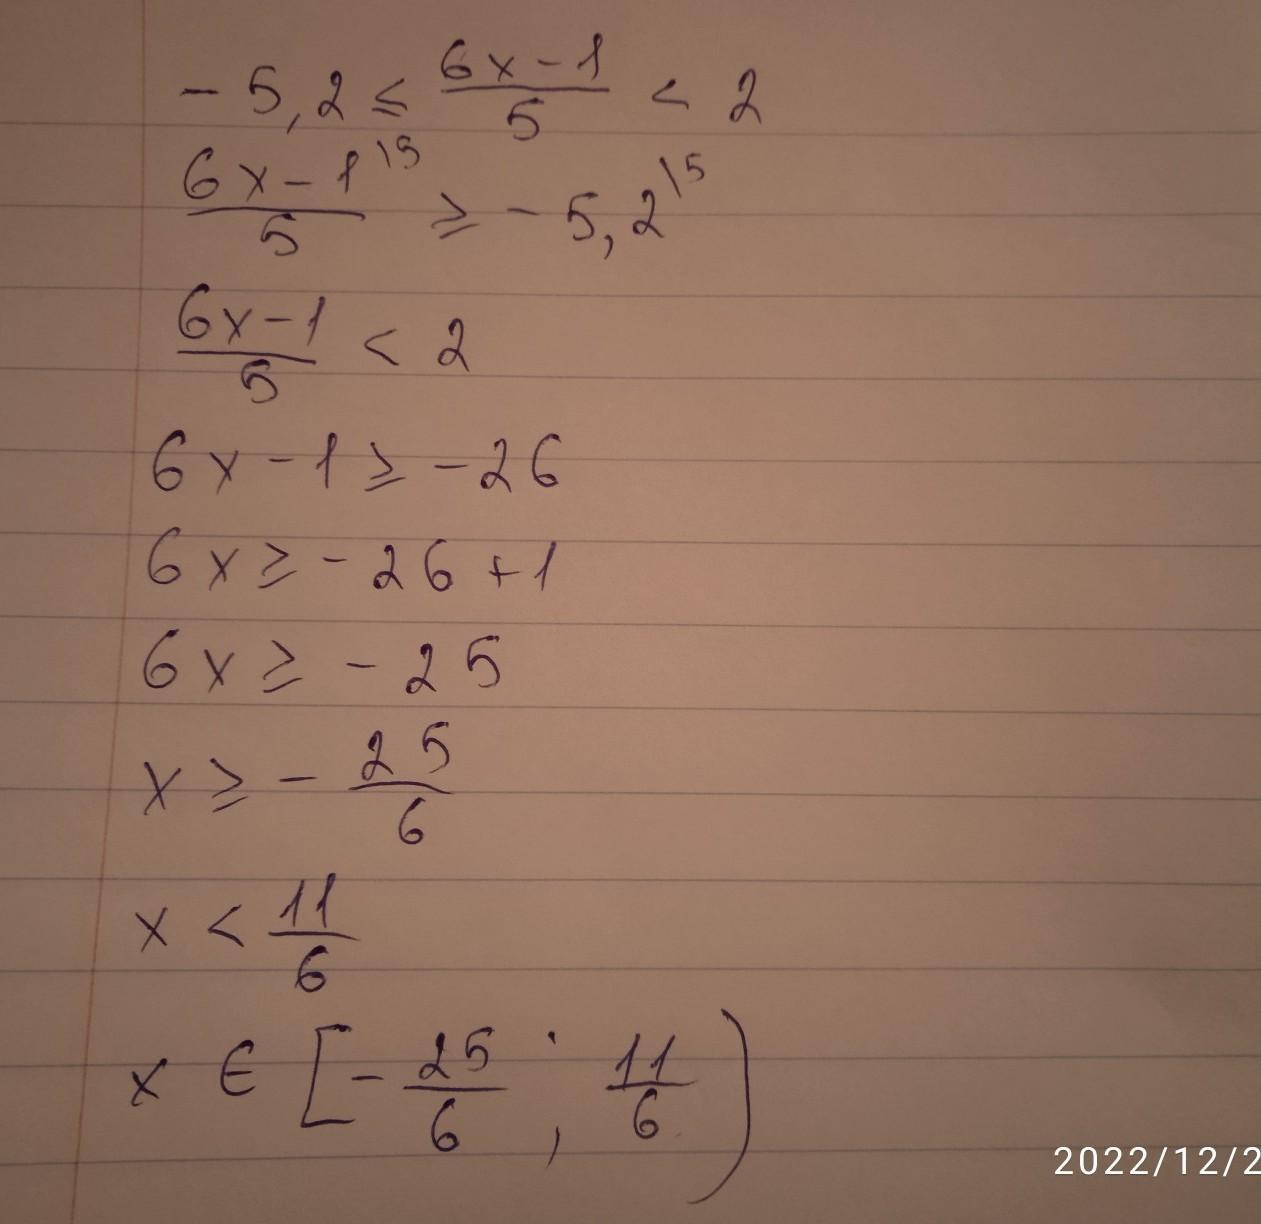 -5,2 ≤ (6x-1)/5 < 2
(6x-1)/5 \5 ≥ -5,2 \5
(6x-1)/5 < 2
6x-1 ≥ -26
6x ≥ -26+1
6x ≥ -25
x ≥ -25/6
x < 11/6
x ∈ [-25/6 ; 11/6)
2022/12/2